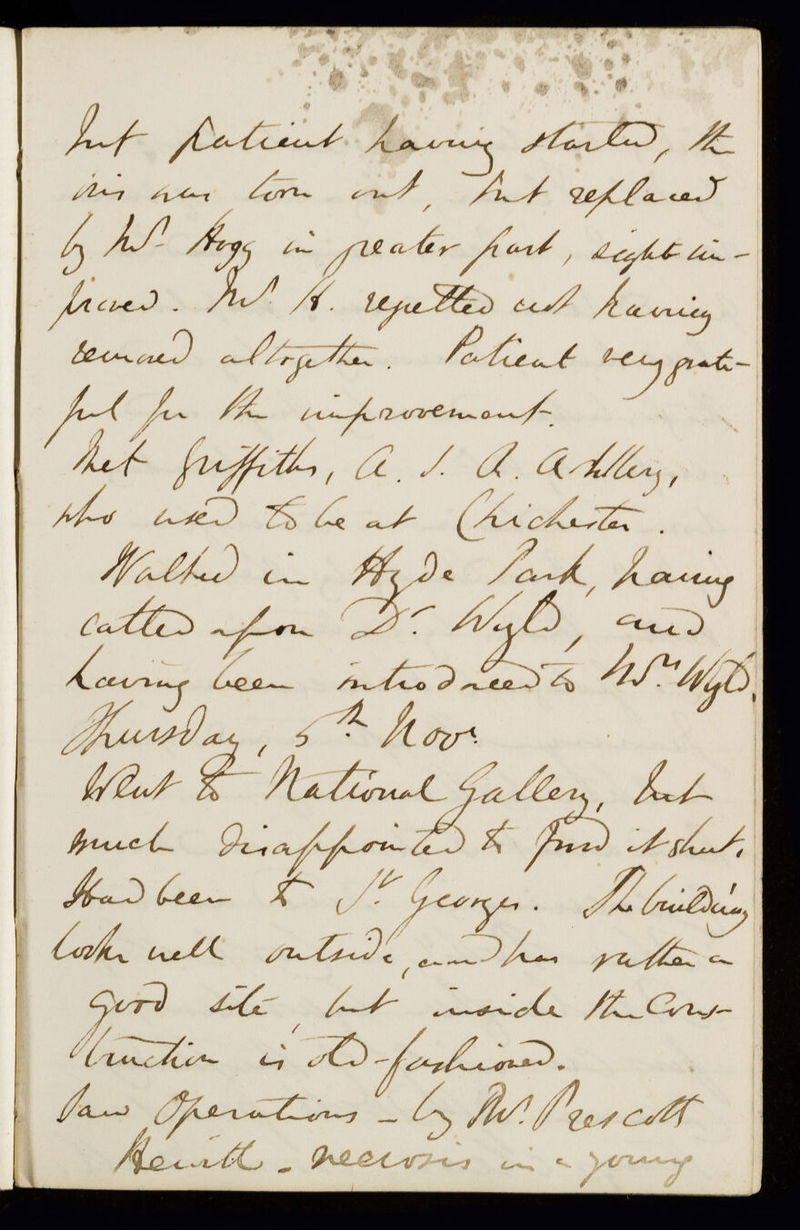 but patient having started, the
iris was torn out, but replaced
by Mr. Hogg in greater part, sight im-
proved. Mr. H. regretted not having
removed altogether. Patient very grate-
ful for the improvement.
Met Griffiths, A. S. R. Artillery,
who used to be at Chichester.
Walked in Hyde Park, having
called upon Dr. Wyld, and
having been introduced to Mrs. Wyld.
Thursday, 5th. Novr.
Went to National Gallery, but
much disappointed to find it shut.
Had been to St. Georges. The building
looks well outside, and has rather a
good site, but inside the Cons-
truction is old-fashioned.
Saw Operations - by Mr. Prescott
Hewitt - necrosis in a young